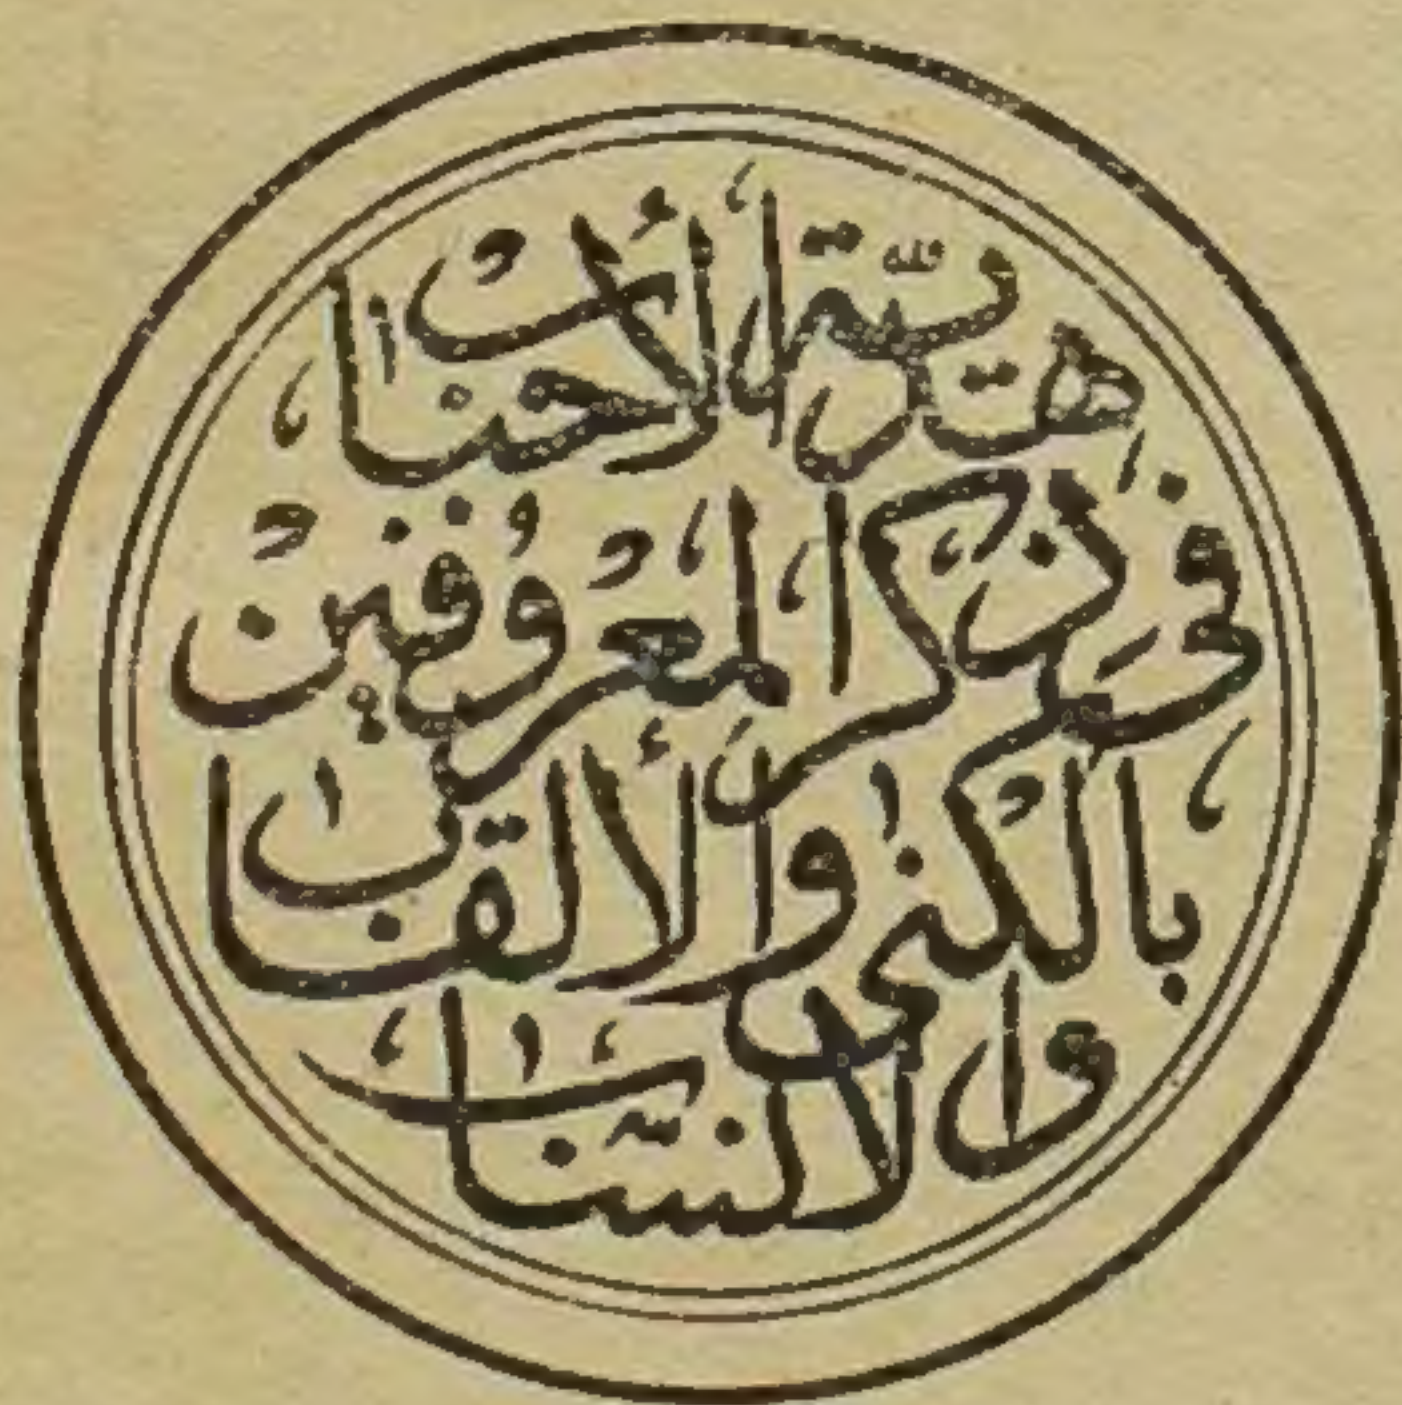 هدية الأحباب
في ذكر المعروفين
بالكنى والألقاب
والأنساب